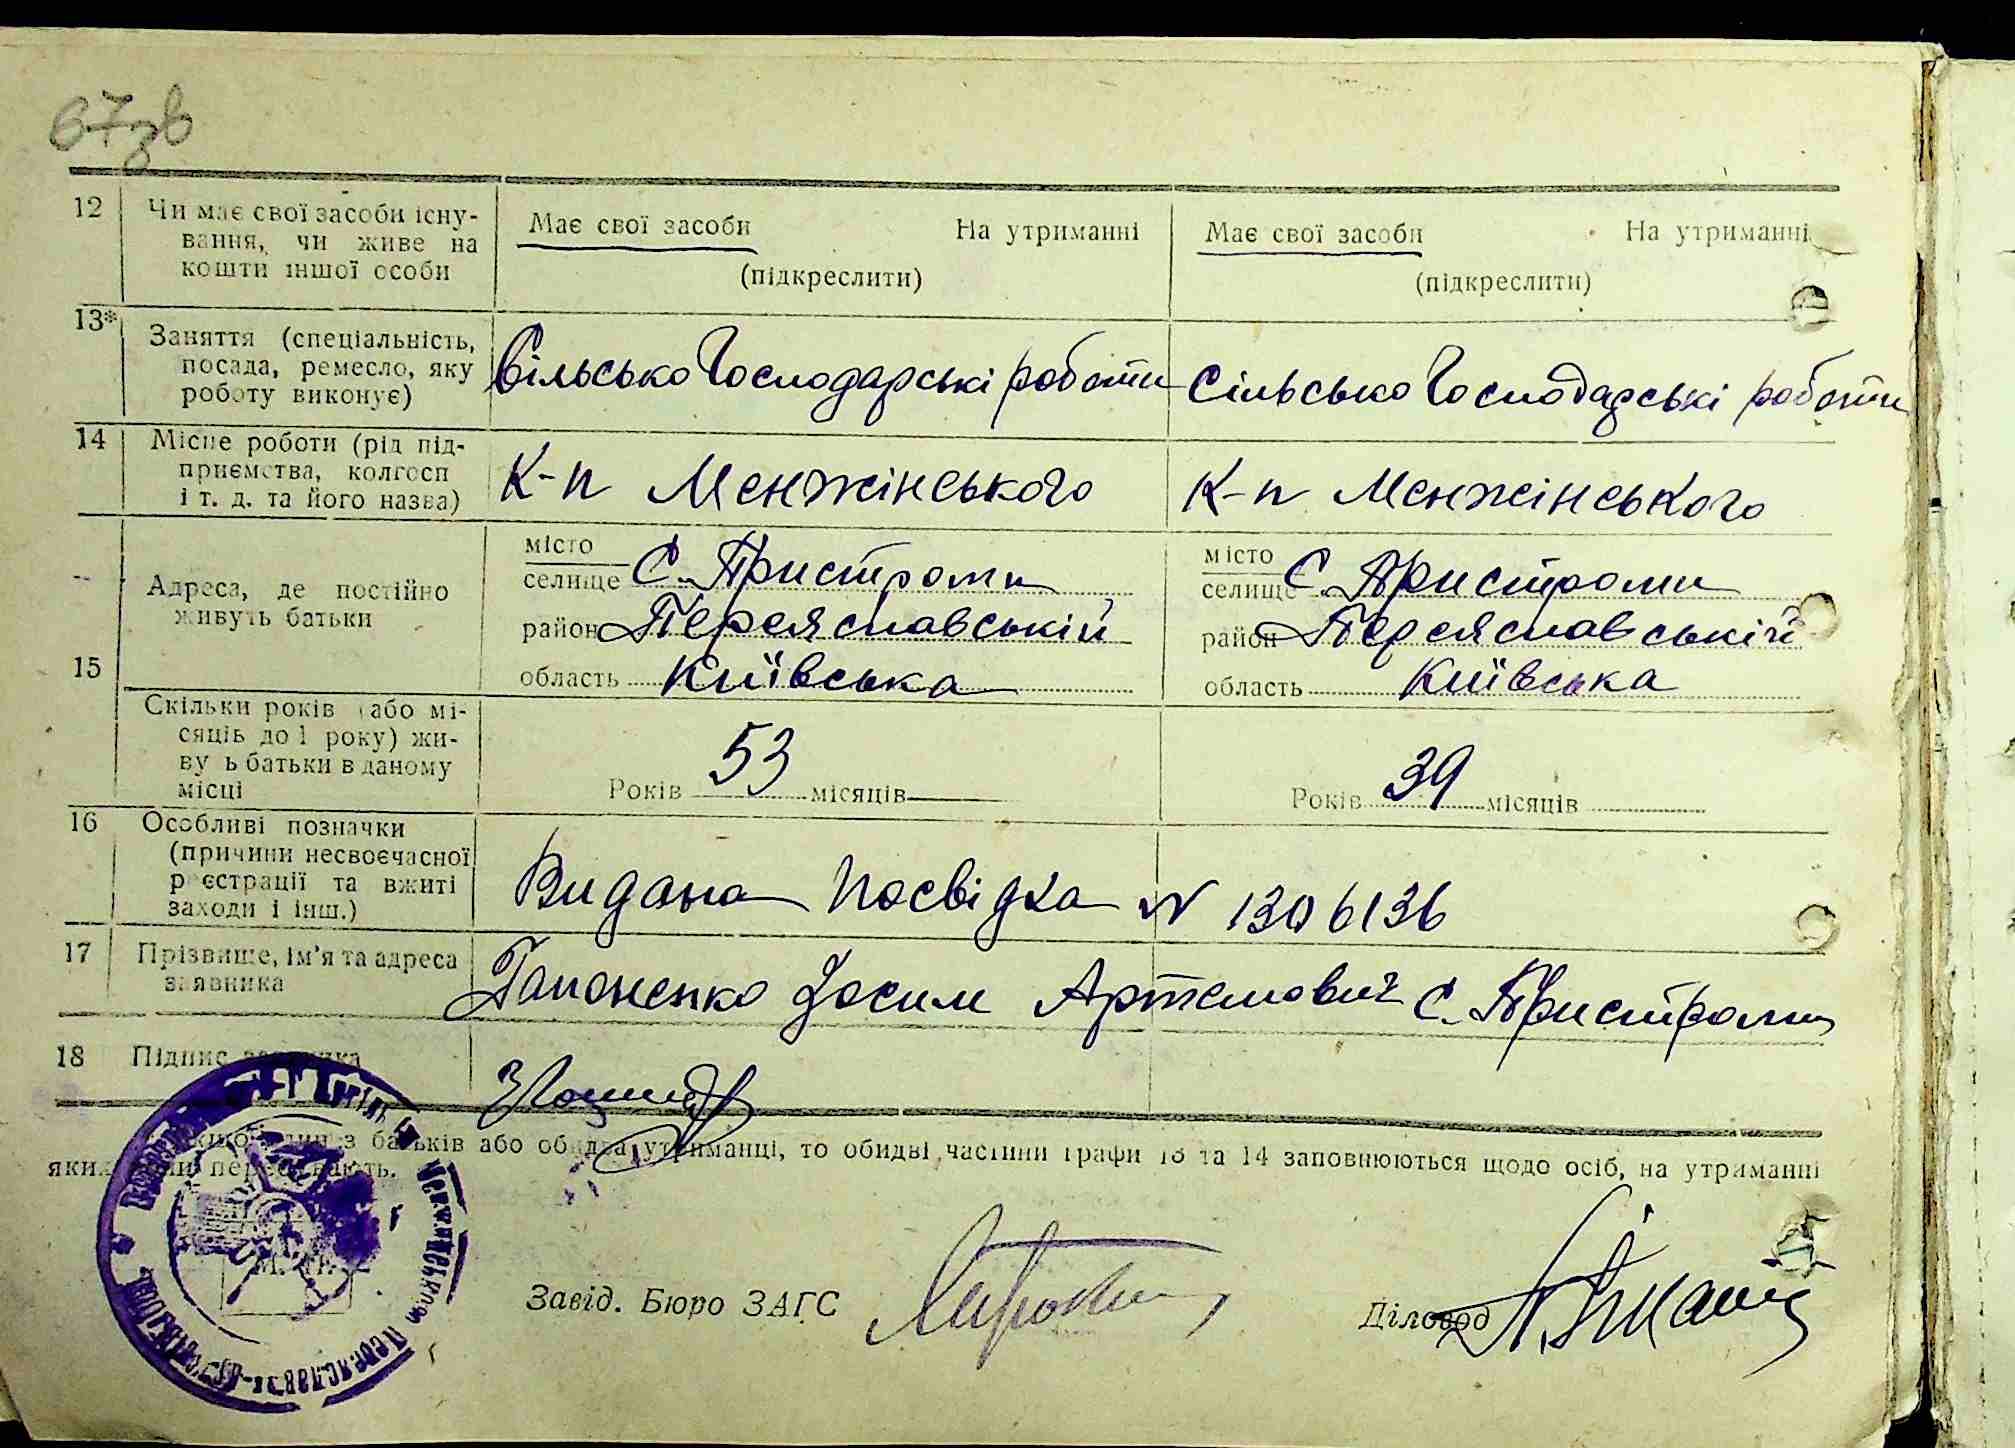 67зв
12 Чи має свої засоби існу-
вання, чи живе на
кошти іншої особи
Має свої засоби На утриманні
(підкреслити)
Має свої засоби На утриманні
(підкреслити)
13* Заняття (спеціальність,
посада, ремесло, яку
роботу виконує)
Сільсько Господарські роботи
Сільсько Господарські роботи
14 Місце роботи (рід під-
приємства, колгосп
і т. д. та його назва)
К-п Менжінського
К-п Менжінського
15 Адреса, де постійно
живуть батьки
місто
селище С. Пристроми
район Переяславський
область Київська
місто
селище С. Пристроми
район Переяславський
область Київська
Скільки років (або мі-
сяців до 1 року) жи-
вуть батьки в даному
місці
Років 53 місяців
Років 39 місяців
16 Особливі позначки
(причини несвоєчасної
реєстрації та вжиті
заходи і інш.)
Видана Посвідка N 1306136
17 Прізвище, ім'я та адреса
заявника
Гапоненко Йосим Артемович С. Пристроми
18 Підпис заявника
з батьків або обидва утриманці, то обидві частини графи 13 та 14 заповнюються щодо осіб, на утриманні
яких вони перебувають.
М. П.
Завід. Бюро ЗАГС
Діловод